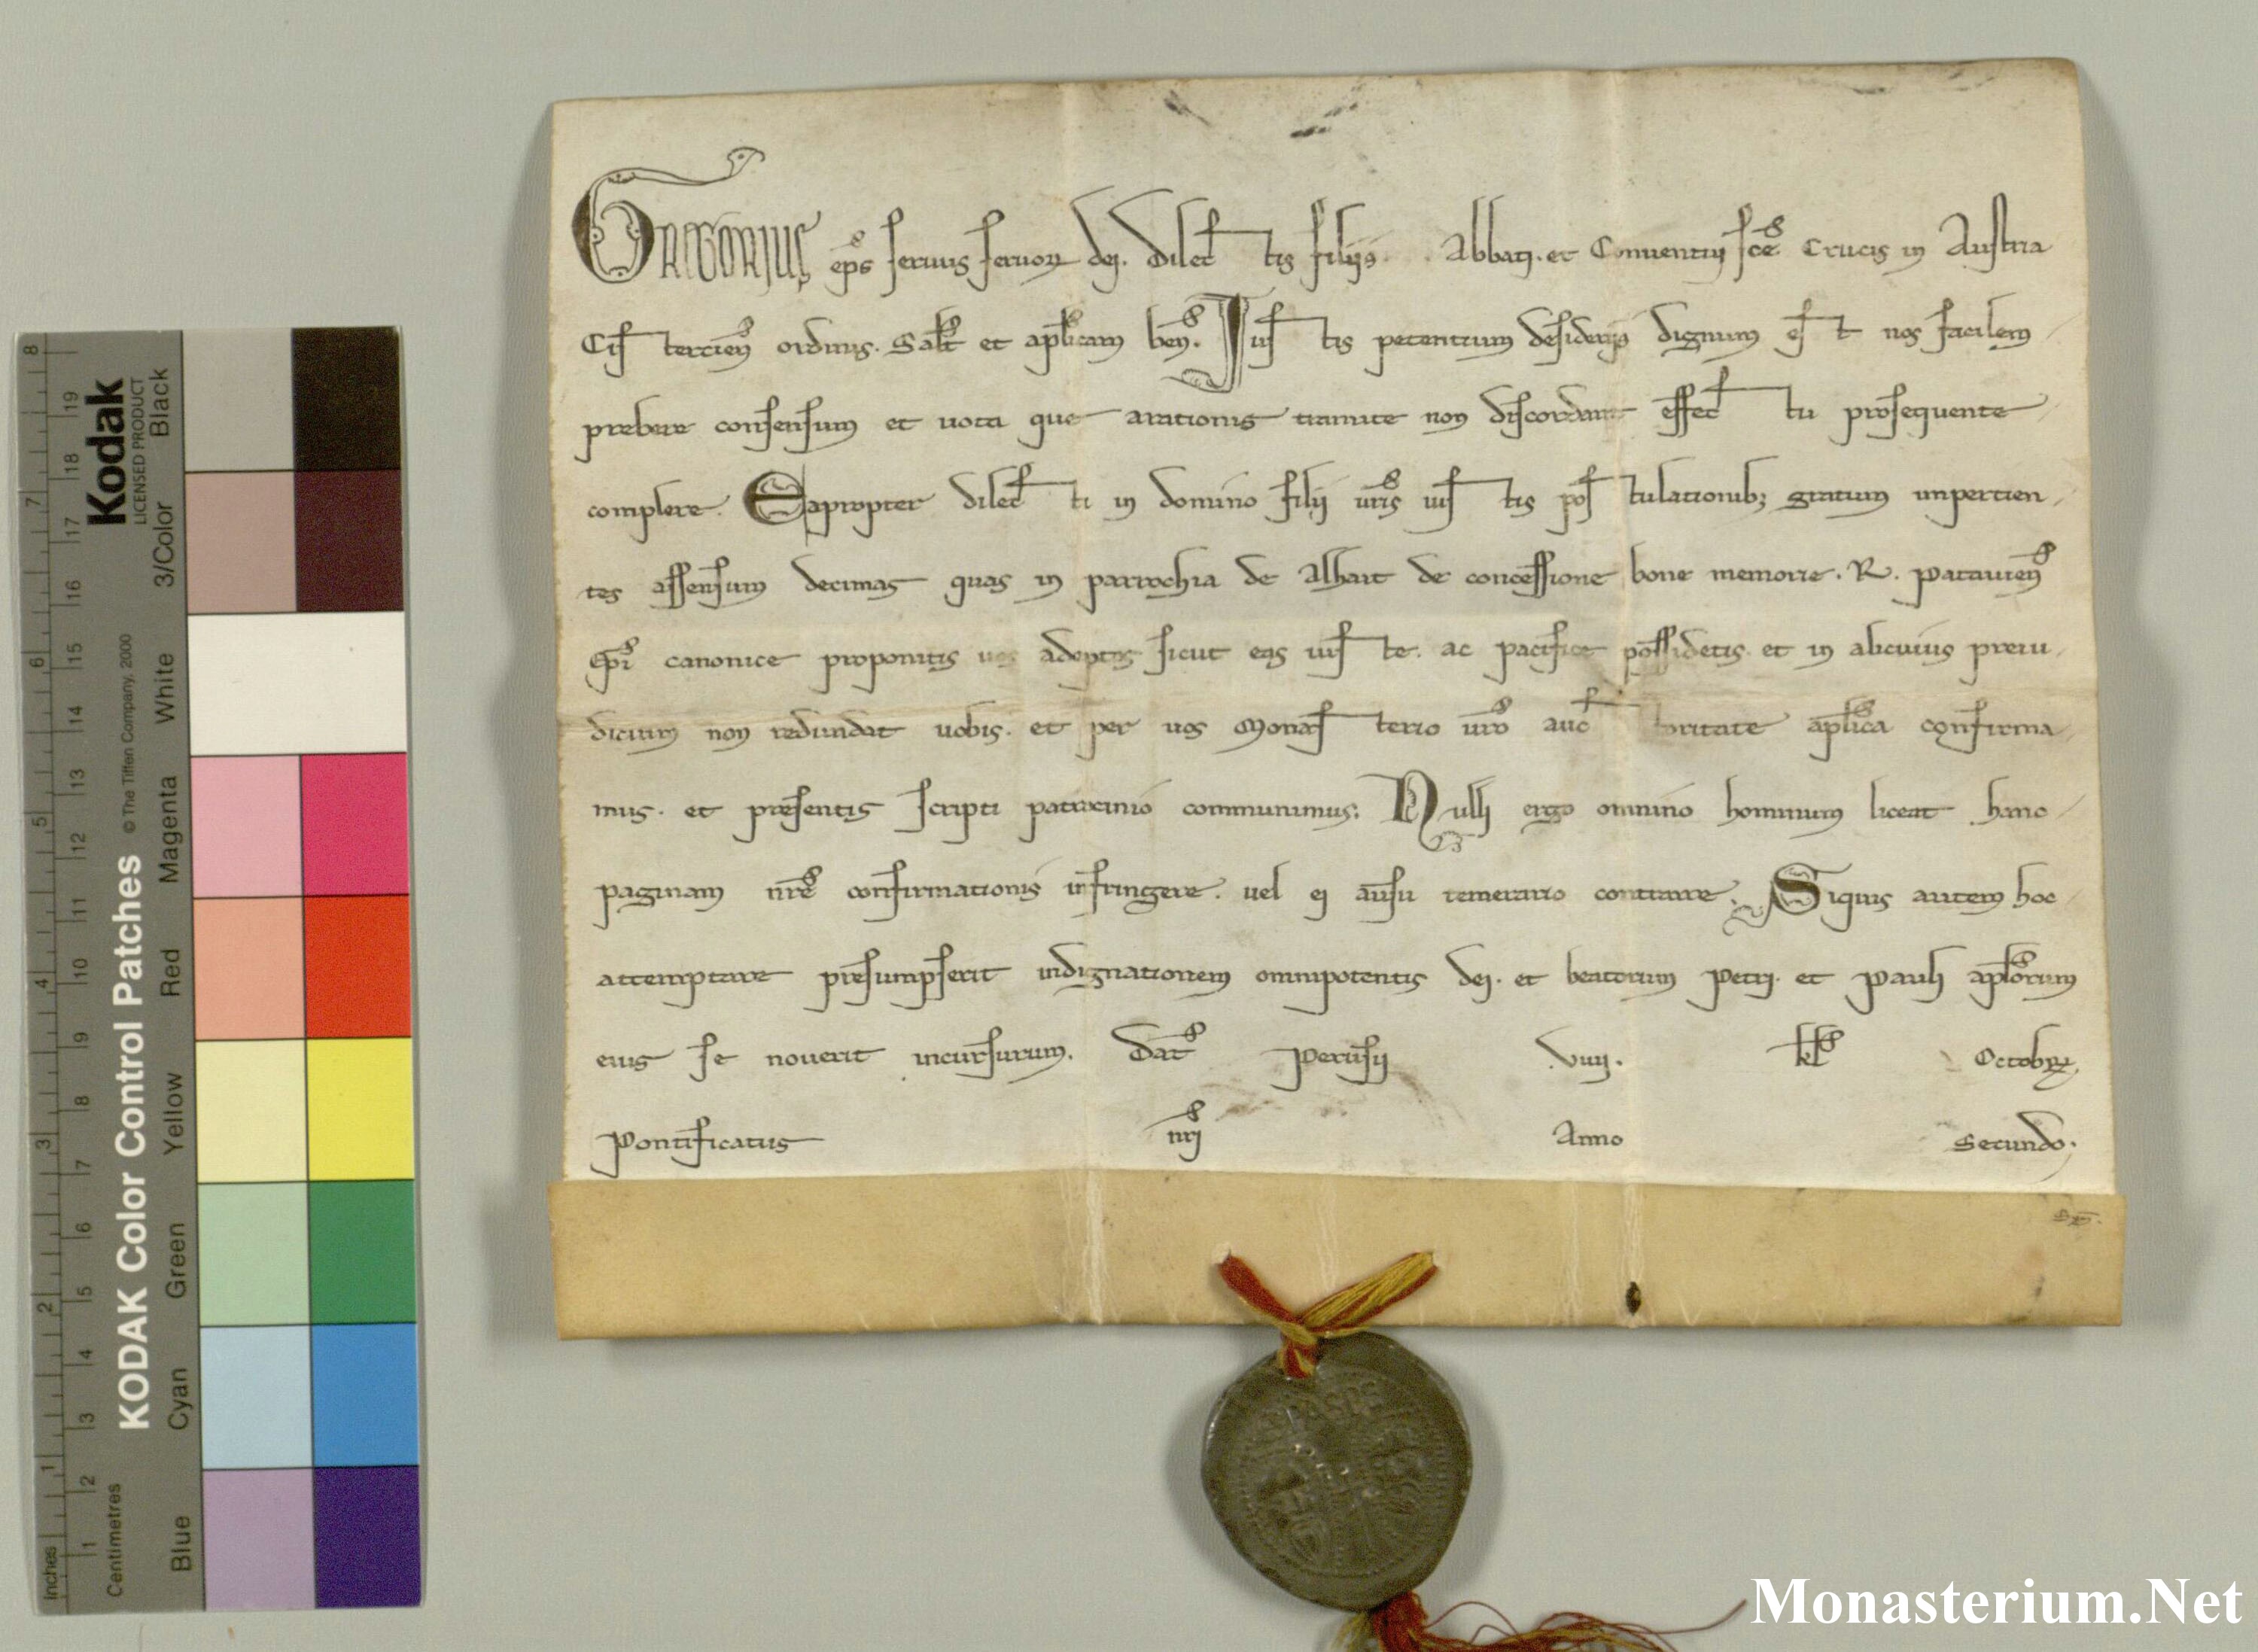 GREGORIUS ep̄s seruus seruoꝝ dei. Dilectis filiis .. Abbati. et Conuentui sc̄e Crucis in Austria
Cisterciēn ordinis. Sal̄t et ap̄licam ben̄. Iustis petentium desideriis dignum est nos facilem
prebere consensum et uota que a rationis tramite non discordant effectu prosequente
complere. Eapropter dilecti in domino filii ur̄is iustis postulationib; gratum impertien
tes assensum decimas quas in parrochia de Alhart de concessione bone memorie. R. patauien̄
ep̄i canonice proponitis uos adeptos sicut eas iuste. ac pacifice possidetis. et in alicuius preiu
dicium non redundat uobis. et per uos Monasterio ur̄o auctoritate ap̄lica confirma
mus. et presentis scripti patrocinio communimus. Nulli ergo omnino hominum liceat hanc
paginam nr̄e confirmationis infringere. uel ei ausu temerario contraire. Siquis autem hoc
attemptare presumpserit indignationem omnipotentis dei. et beatorum Petri. et Pauli ap̄lorum
eius se nouerit incursurum. Dat̄ Perusii Viiij. kl̄ Octobꝝ.
Pontificatus nr̄i Anno Secundo.
KODAK Color Control Patches © The Tiffen Company, 2000
Kodak
LICENSED PRODUCT
Inches 1 2 3 4 5 6 7 8
Centimetres 1 2 3 4 5 6 7 8 9 10 11 12 13 14 15 16 17 18 19
Blue Cyan Green Yellow Red Magenta White 3/Color Black
Monasterium.Net